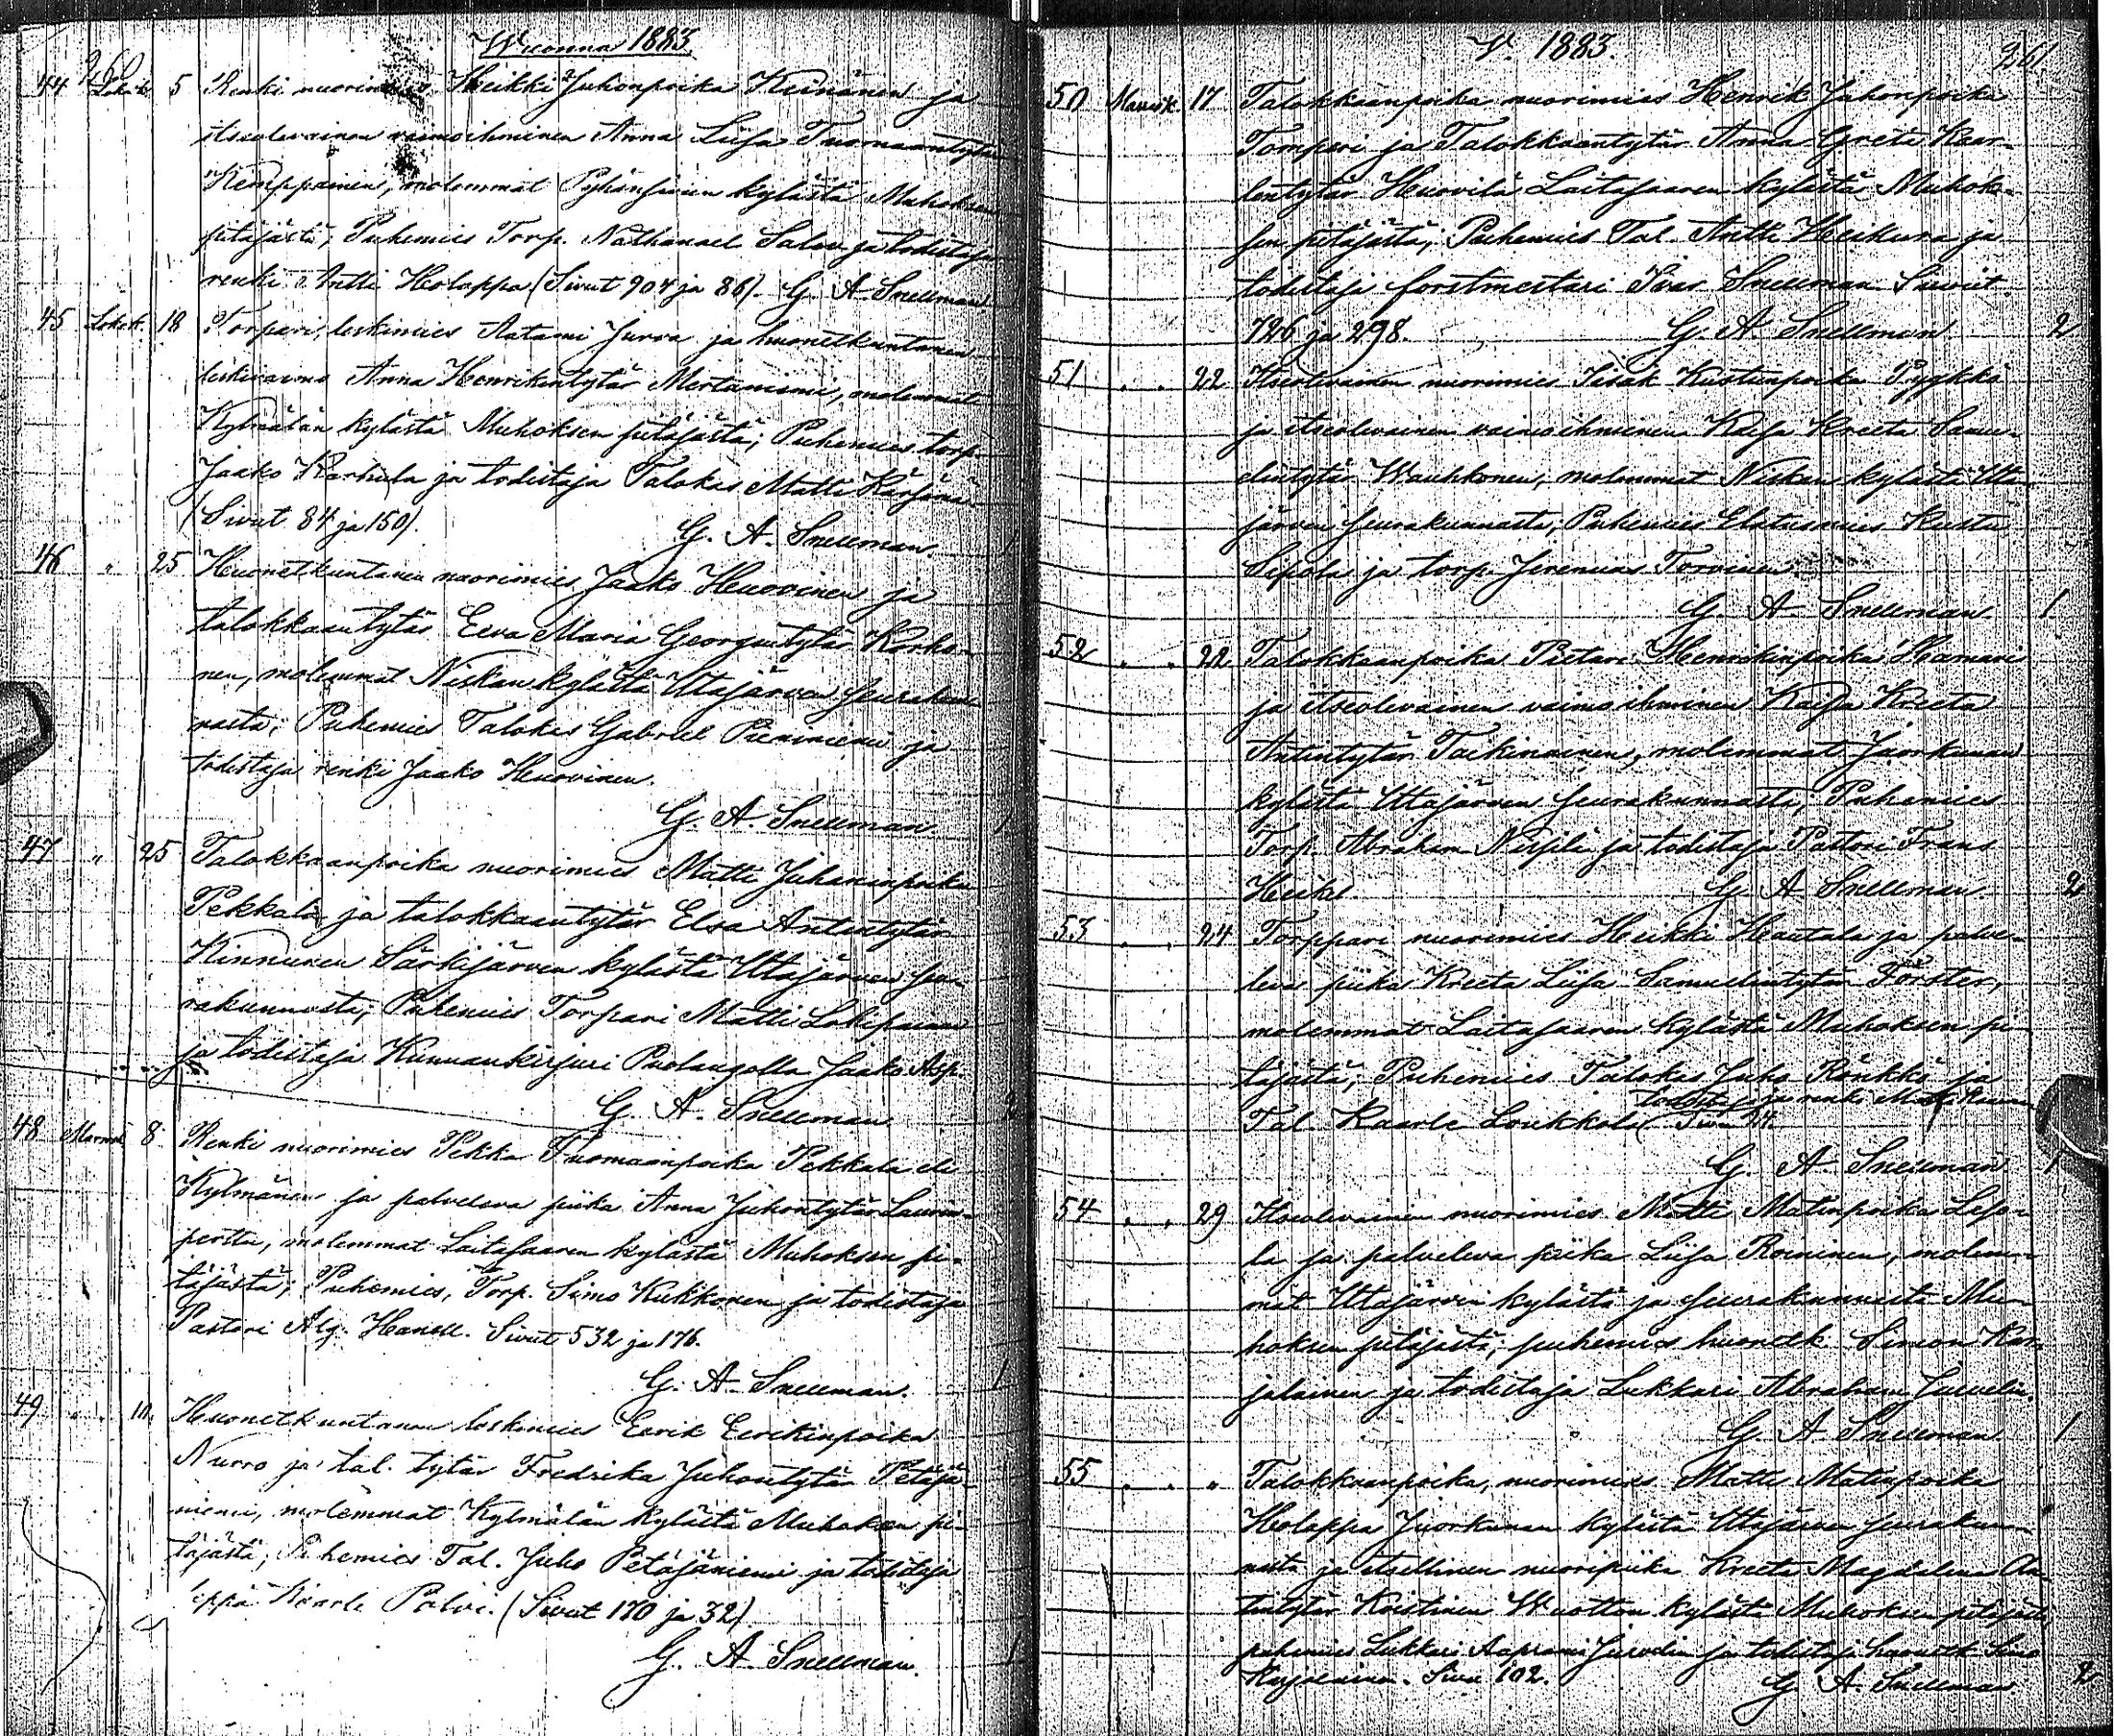 Wuonna 1883.
260
44 Lokak. 5 Renki nuorimies Heikki Juhonpoika Keinänen ja
itseolevainen vaimoihminen Anna Liisa Tuomaantytär
Kemppainen, molemmat Pyhänsivun kylästä Muhoksen
pitäjästä; Puhemies Torp. Nathanael Salow ja todistaja
renki Antti Holappa (Sivut 904 ja 86). G. A. Snellman
45 Lokak. 18 Torpari, leskimies Aatami Jurva ja huonetkuntanen
leskivaimo Anna Henrikintytär Mertaniemi, molemmat
Kylmälän kylästä Muhoksen pitäjästä; Puhemies torp.
Jaako Karhula ja todistaja Talokas Matti Kärjänä.
(Sivut 84 ja 150).
G. A. Snellman. 1
46 " 25 Huonetkuntanen nuorimies Jaako Huovinen ja
talokkaantytär Eeva Maria Georgintytär Korho-
nen, molemmat Niskan kylästä Utajärven seurakun-
nasta; Puhemies Talokas Gabriel Pieniniemi ja
todistaja renki Jaako Huovinen.
G. A. Snellman 1
47 " 25 Talokkaanpoika nuorimies Matti Juhaninpoika
Pekkala ja talokkaantytär Elsa Antintytär
Kinnunen Särkijärven kylästä Utajärven seu-
rakunnasta; Puhemies Torpari Matti
ja todistaja Kunnankirjuri Puolangolla Jaako Asp.
G. A. Snellman 2
48 Marrask. 8 Renki nuorimies Pekka Tuomaanpoika Pekkala eli
Kylmänen ja palveleva piika Anna Juhontytär Laurin-
pertta, molemmat Laitasaaren kylästä Muhoksen pi-
täjästä; Puhemies, Torp. Simo Kukkonen ja todistaja
Pastori Alg. Hanell. Sivut 532 ja 176.
G. A. Snellman. 1
49 " 10. Huonetkuntanen leskimies Eerik Eerikinpoika
Nurro ja tal. tytär Fredrika Juhontytär Petäjä-
niemi, molemmat Kylmälän kylästä Muhoksen pi-
täjästä; Puhemies Tal. Juho Petäjäniemi ja todistaja
Kaarle Palvi. (Sivut 170 ja 32)
G. A. Snellman. 1
V. 1883. 261
50 Marrask. 17 Talokkaanpoika nuorimies Henrik Juhonpoika
Tomperi ja Talokkaantytär Anna Greta Kaar-
lentytär Huovila Laitasaaren kylästä Muhok-
sen pitäjästä; Puhemies Tal. Antti Heikura ja
todistaja forstmestari Ivar Snellman. Sivut
726 ja 298. G. A. Snellman 2
51 " 22 Itseolevainen nuorimies Iisak Kustunpoika Pyykkö
ja itseolevainen vaimoihminen Kaisa Kreeta Samu-
elintytär Wauhkonen, molemmat Niskan kylästä Uta-
järven seurakunnasta; Puhemies Elatusmies Kustu
Sipola ja torp. Jeremias Torvinen.
G. A. Snellman 1
52 " 22 Talokkaanpoika Pietari Henrikinpoika Hamari
ja itseolevainen vaimoihminen Kaisa Kreeta
Antintytär Taikinainen, molemmat Juorkunan
kylästä Utajärven seurakunnasta; Puhemies
Torp. Abraham ja todistaja Pastori Frans
Heikel. G. A. Snellman 2
53 " 24 Torppari nuorimies Heikki Hautala ja palve-
leva piika Kreeta Liisa Samuelintytär Förster,
molemmat Laitasaaren kylästä Muhoksen pi-
täjästä; Puhemies Talokas Juho Rönkkö ja
todistaja renki Matti
Tal Kaarle Loukkola.
G. A. Snellman 1
54 " 29 Itseolevainen nuorimies Matti Matinpoika Leso-
la ja palveleva piika Liisa Roininen, molem-
mat Utajärven kylästä ja seurakunnasta Mu-
hoksen pitäjästä; puhemies huonetk. Simon Kar-
jalainen ja todistaja Lukkari Abraham Jurvelin.
G. A. Snellman 1
55 " " Talokkaanpoika, nuorimies Matti Matinpoika
Holappa Juorkunan kylästä Utajärven seurakun-
nasta ja itsellinen nuoripiika Kreeta Magdalena An-
tintytär Koistinen Wuotton kylästä Muhoksen pitäjästä;
puhemies Lukkari Aaprami Jurvelin ja todistaja huonetk. Simo
Karjalainen. Sivu 102. G. A. Snellman 2